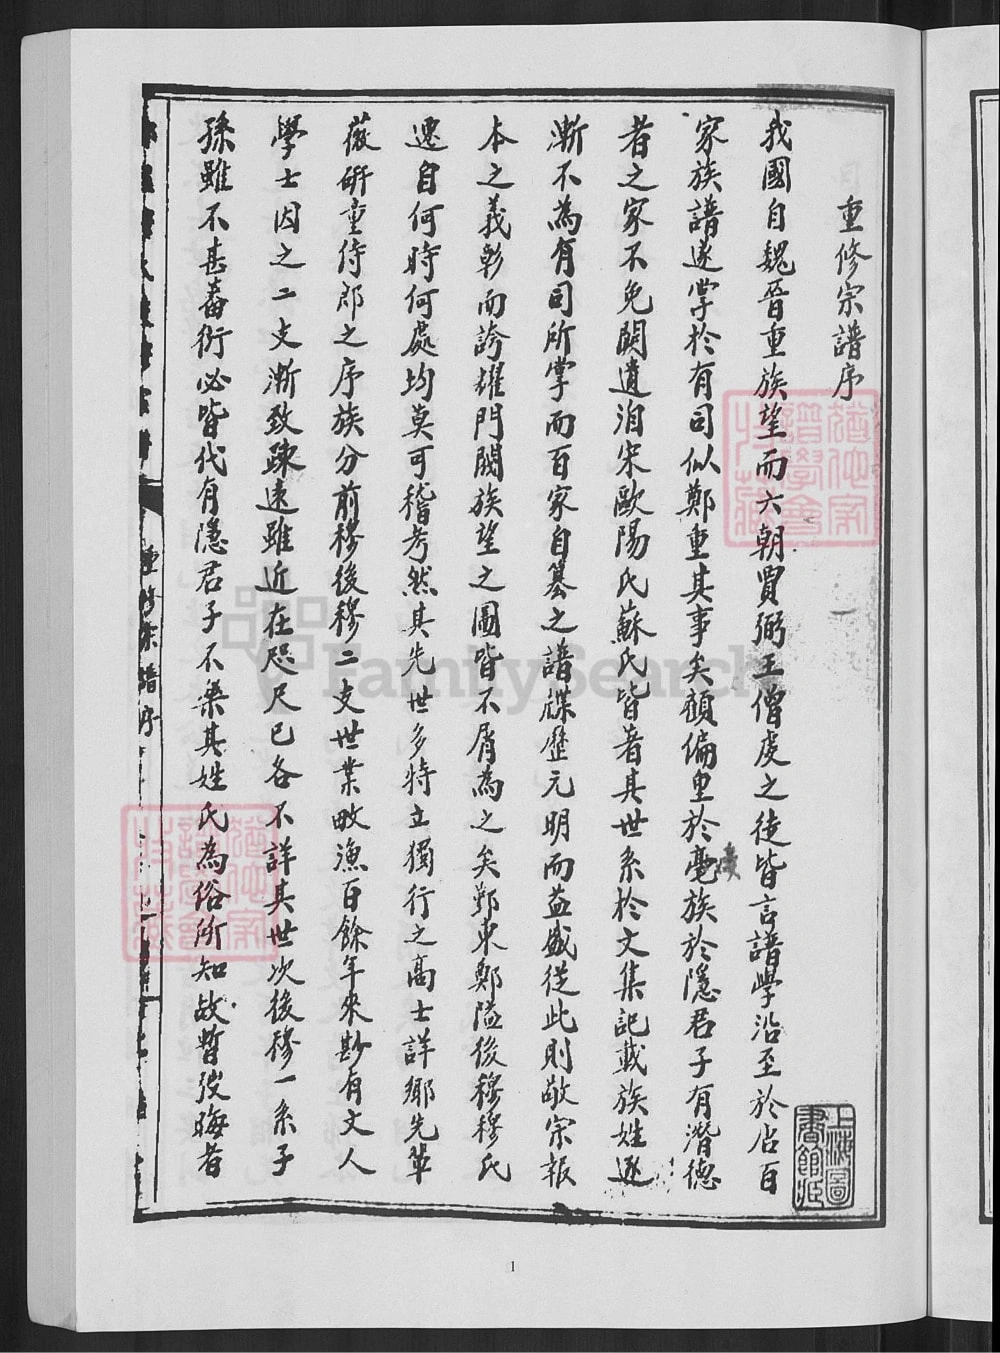 重修宗譜序
我國自魏晉重族望而六朝賈弼王僧虔之徒皆言譜學沿至於唐百
家族譜遂掌於有司似鄭重其事矣顧偏重於亳族於隱君子有潛德
者之家不免闕遺洎宋歐陽氏蘇氏皆著其世系於文集記載族姓遂
漸不為有司所掌而百家自纂之譜牒歷元明而益盛從此則敬宗報
本之義彰而誇耀門閥族望之圖皆不屑為之矣鄞東鄭隘後穆穆氏
遷自何時何處均莫可稽考然其先世多特立獨行之高士詳鄉先輩
薇研童侍郎之序族分前穆後穆二支世業畋漁百餘年來尠有文人
學士因之二支漸致疎遠雖近在咫尺已各不詳其世次後穆一系子
孫雖不甚蕃衍必皆代有隱君子不樂其姓氏為俗所知故暫韜晦者
重修宗譜序
上海圖書館藏
猶他家譜學會特藏
猶他家譜學會特藏
FamilySearch
1